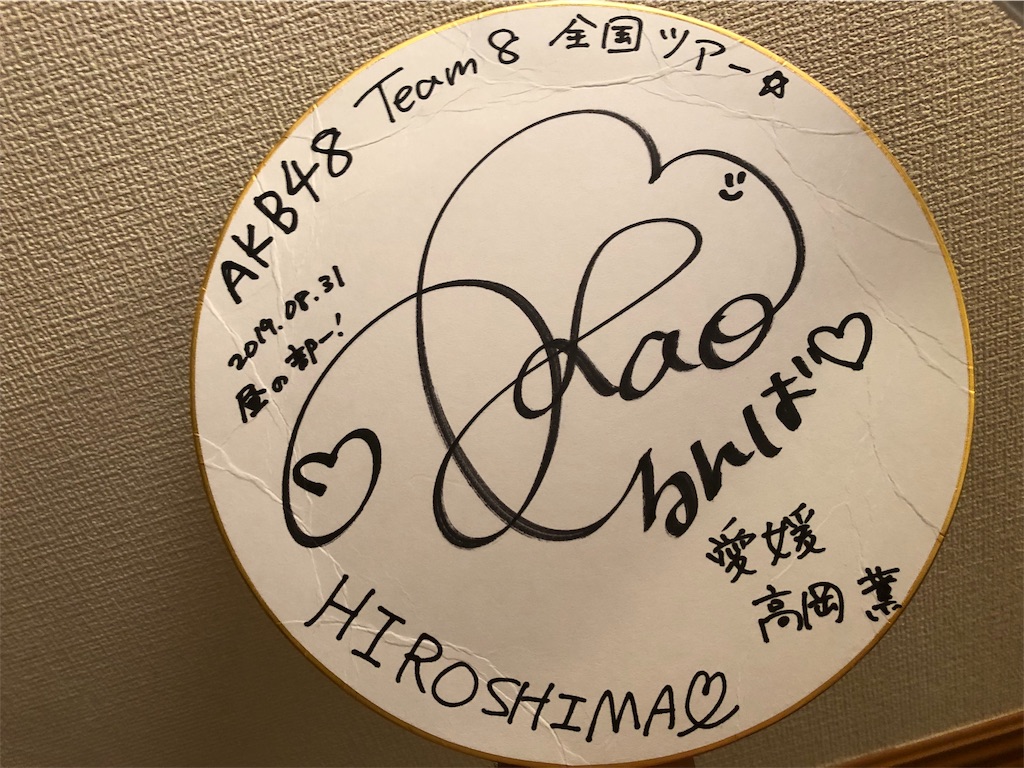 AKB48 Team 8 全国ツアー☆
2019.08.31
昼の部ー!
Kao
るんば♡
愛媛
高岡 薫
HIROSHIMA♡